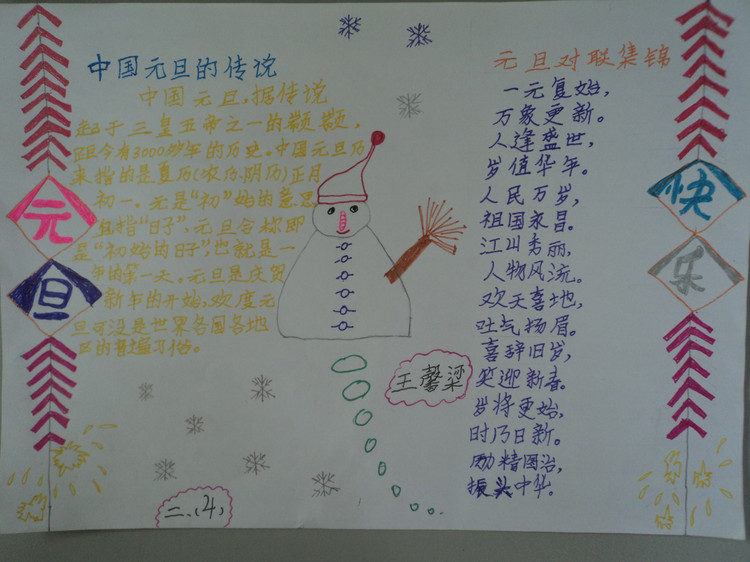 元
旦
快
乐
中国元旦的传说
中国元旦,据传说
起于三皇五帝之一的颛顼,
距今有3000多年的历史。中国元旦历
来指的是夏历(农历、阴历)正月
初一。元是“初”始的意思
旦指“日子”,元旦合称即
是“初始的日子”,也就是一
年的第一天。元旦是庆贺
新年的开始,欢度元
旦可说是世界各国各地
区的普遍习俗。
王馨梁
二、(4)
元旦对联集锦
一元复始,
万象更新。
人逢盛世,
岁值华年。
人民万岁,
祖国永昌。
江山秀丽,
人物风流。
欢天喜地,
吐气扬眉。
喜辞旧岁,
笑迎新春。
岁将更始,
时乃日新。
励精图治,
振头中华。